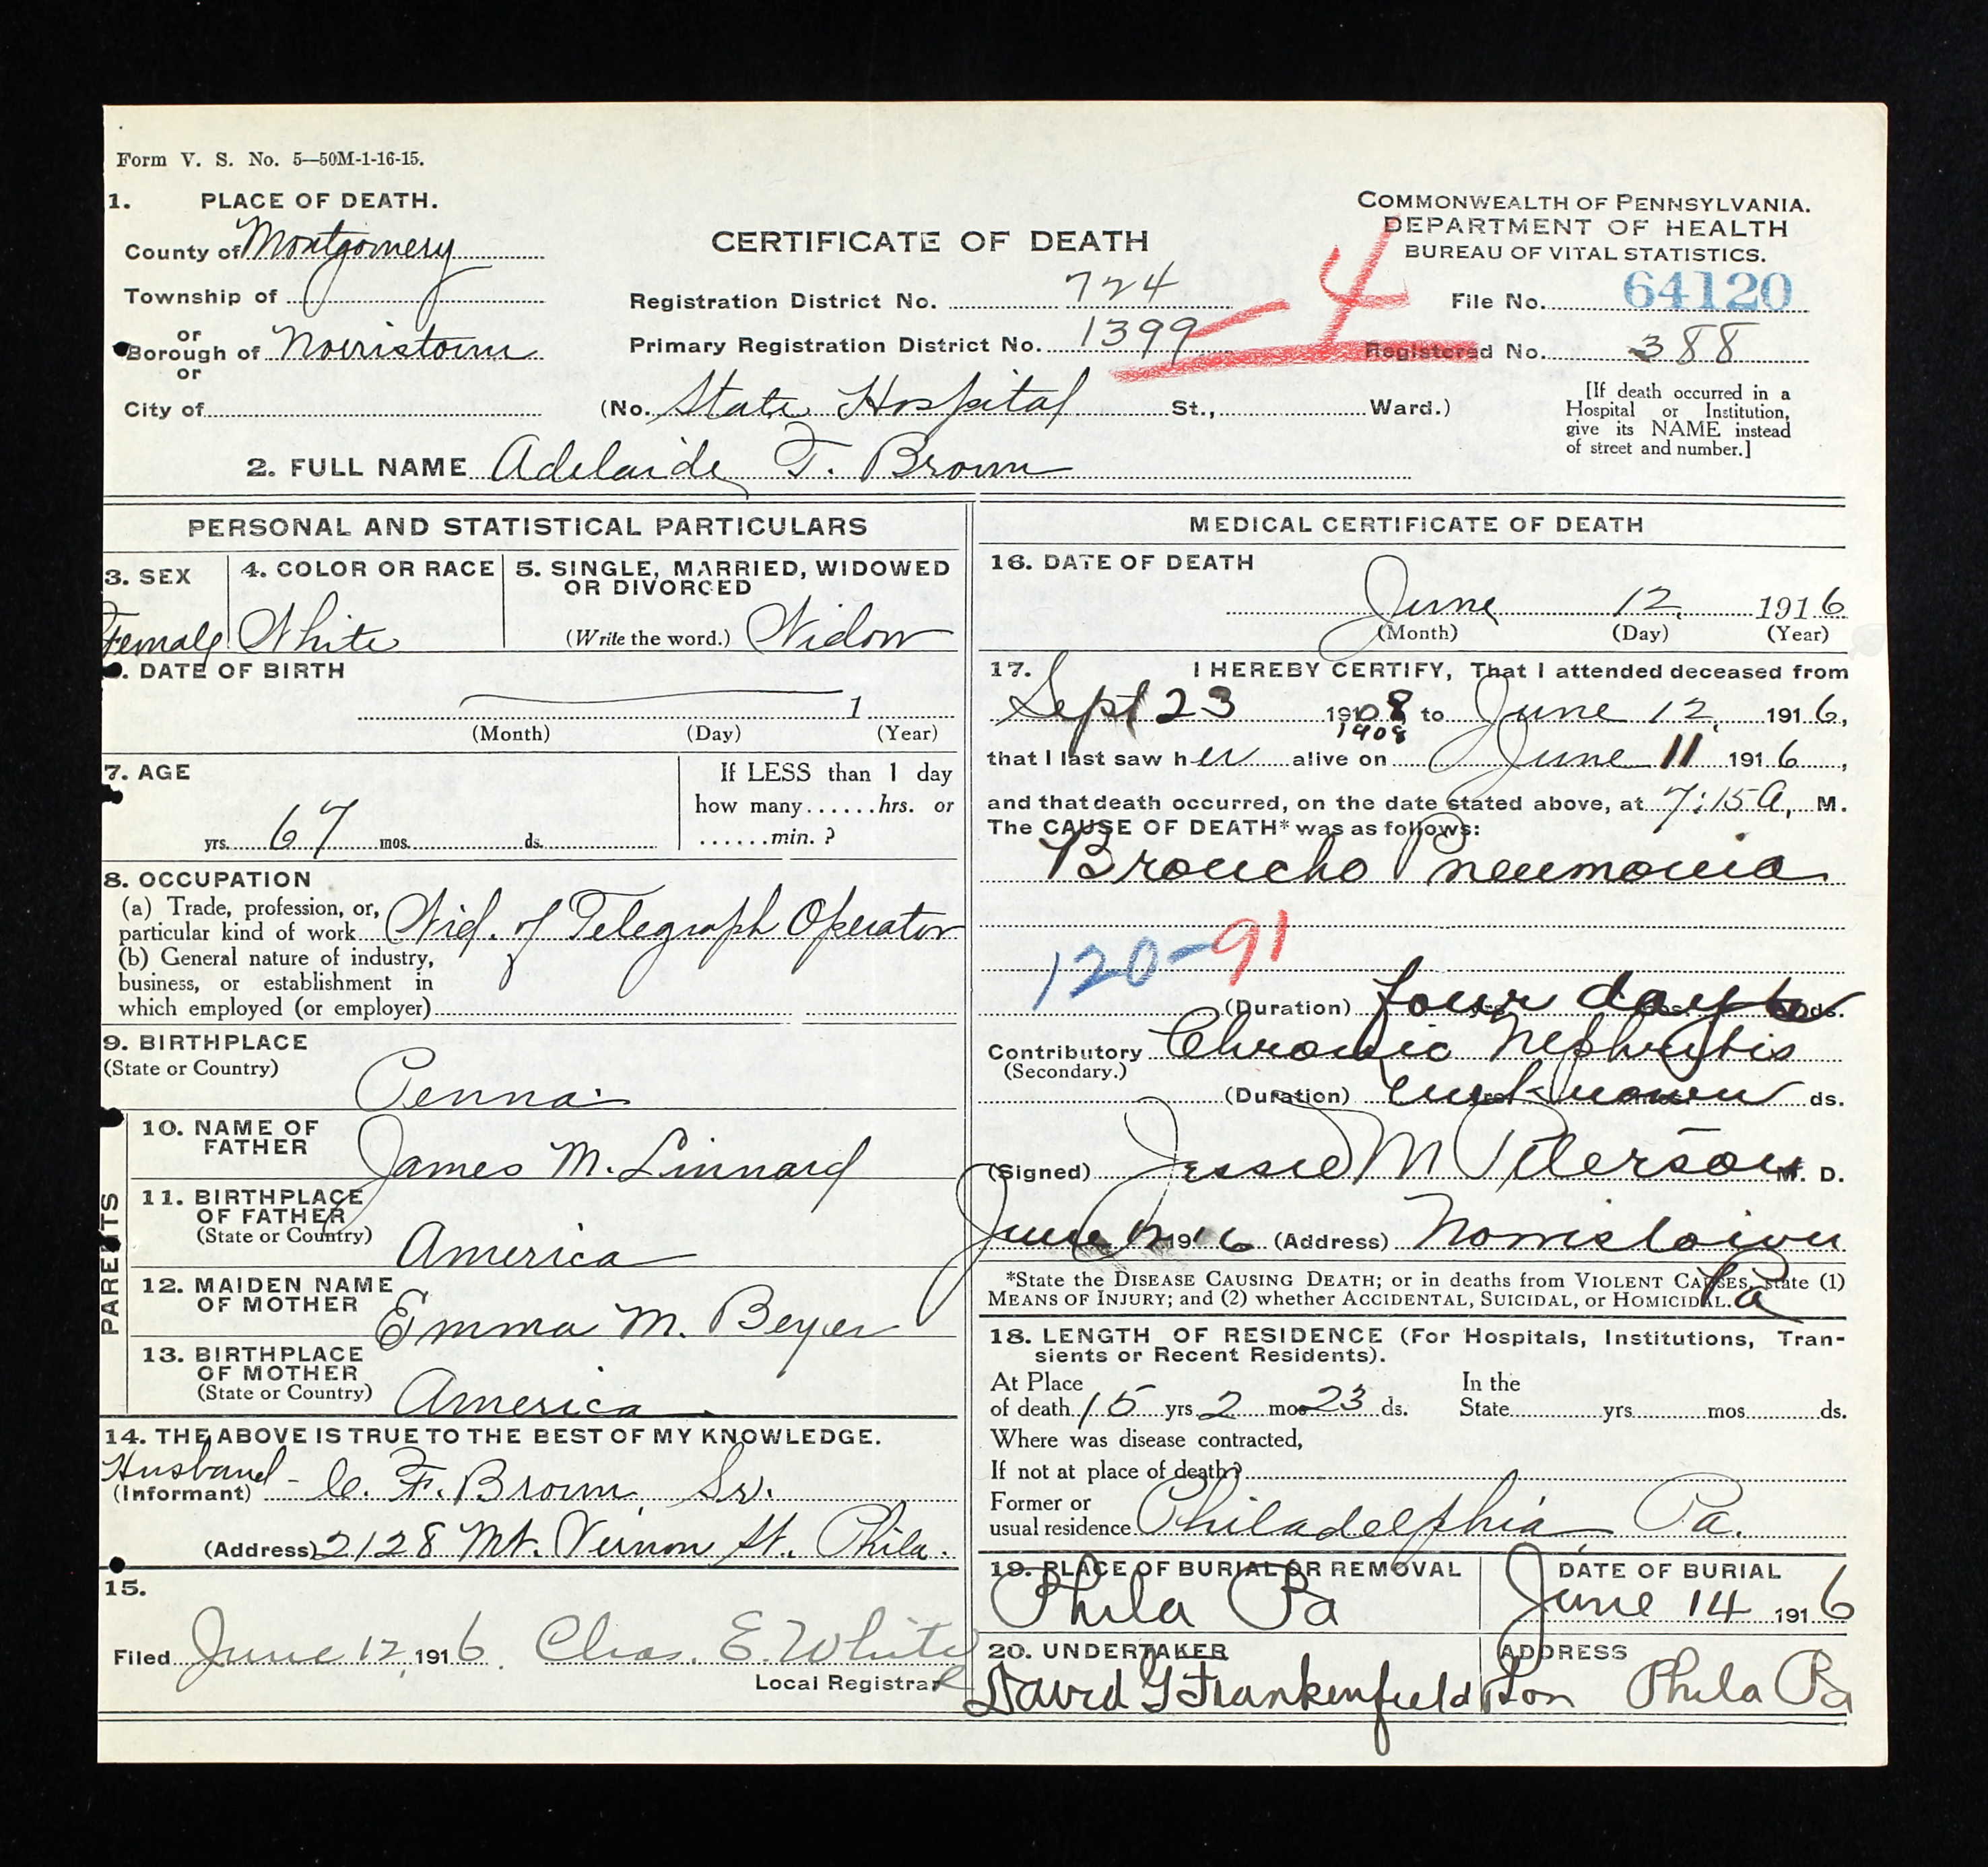 Form V. S. No. 5—50M-1-16-15.
1. PLACE OF DEATH.
County of Montgomery
Township of
or
Borough of Norristown
or
City of
CERTIFICATE OF DEATH
Registration District No. 724
Primary Registration District No. 1399
(No. State Hospital St., Ward.)
COMMONWEALTH OF PENNSYLVANIA.
DEPARTMENT OF HEALTH
BUREAU OF VITAL STATISTICS.
File No. 64120
Registered No. 388
-4
[If death occurred in a
Hospital or Institution,
give its NAME instead
of street and number.]
2. FULL NAME Adelaide F. Brown
PERSONAL AND STATISTICAL PARTICULARS
3. SEX
Female
4. COLOR OR RACE
White
5. SINGLE, MARRIED, WIDOWED
OR DIVORCED
(Write the word.) Widow
. DATE OF BIRTH
1
(Month) (Day) (Year)
7. AGE
yrs. 67 mos. ds.
If LESS than 1 day
how many......hrs. or
......min. ?
8. OCCUPATION
(a) Trade, profession, or,
particular kind of work Wid. of Telegraph Operator
(b) General nature of industry,
business, or establishment in
which employed (or employer)
9. BIRTHPLACE
(State or Country)
Penna.
PARENTS
10. NAME OF
FATHER
James M. Linnard
11. BIRTHPLACE
OF FATHER
(State or Country)
America
12. MAIDEN NAME
OF MOTHER
Emma M. Beyer
13. BIRTHPLACE
OF MOTHER
(State or Country)
America
14. THE ABOVE IS TRUE TO THE BEST OF MY KNOWLEDGE.
Husband -
(Informant) C. F. Brown, Sr.
(Address) 2128 Mt. Vernon St. Phila.
15.
Filed June 12, 1916. Chas. E. White
Local Registrar
MEDICAL CERTIFICATE OF DEATH
16. DATE OF DEATH
June 12, 1916
(Month) (Day) (Year)
17. I HEREBY CERTIFY, That I attended deceased from
Sept 23 1908 to June 12, 1916,
1908
that I last saw her alive on June 11 1916,
and that death occurred, on the date stated above, at 7:15 A, M.
The CAUSE OF DEATH* was as follows:
Broncho Pneumonia
120-91
(Duration) four days ds.
Contributory Chronic Nephritis
(Secondary.)
(Duration) unknown ds.
(Signed) Jessie M Peterson M. D.
June 12 1916 (Address) Norristown
Pa
*State the DISEASE CAUSING DEATH; or in deaths from VIOLENT CAUSES, state (1)
MEANS OF INJURY; and (2) whether ACCIDENTAL, SUICIDAL, or HOMICIDAL.
18. LENGTH OF RESIDENCE (For Hospitals, Institutions, Tran-
sients or Recent Residents).
At Place In the
of death 15 yrs 2 mos 23 ds. State yrs mos ds.
Where was disease contracted,
If not at place of death?
Former or
usual residence Philadelphia Pa.
19. PLACE OF BURIAL OR REMOVAL
Phila Pa
DATE OF BURIAL
June 14 1916
20. UNDERTAKER
ADDRESS
David G Frankenfield Son Phila Pa